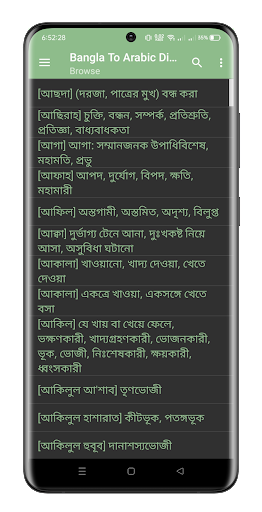 6:52:28
88%
Bangla To Arabic Di...
Browse
[আছদা] (দরজা, পাত্রের মুখ) বন্ধ করা
[আছিরাহ] চুক্তি, বন্ধন, সম্পর্ক, প্রতিশ্রুতি,
প্রতিজ্ঞা, বাধ্যবাধকতা
[আগা] আগা: সম্মানজনক উপাধিবিশেষ,
মহামতি, প্রভু
[আফাহ] আপদ, দুর্যোগ, বিপদ, ক্ষতি,
মহামারী
[আফিল] অস্তগামী, অস্তমিত, অদৃশ্য, বিলুপ্ত
[আক্বা] দুর্ভাগ্য টেনে আনা, দুঃখকষ্ট নিয়ে
আসা, অসুবিধা ঘটানো
[আকালা] খাওয়ানো, খাদ্য দেওয়া, খেতে
দেওয়া
[আকালা] একত্রে খাওয়া, একসঙ্গে খেতে
বসা
[আকিল] যে খায় বা খেয়ে ফেলে,
ভক্ষণকারী, খাদ্যগ্রহণকারী, ভোজনকারী,
ভূক, ভোজী, নিঃশেষকারী, ক্ষয়কারী,
ধ্বংসকারী
[আকিলুল আ'শাব] তৃণভোজী
[আকিলুল হাশারাত] কীটভূক, পতঙ্গভূক
[আকিলুল হুবূব] দানাশস্যভোজী